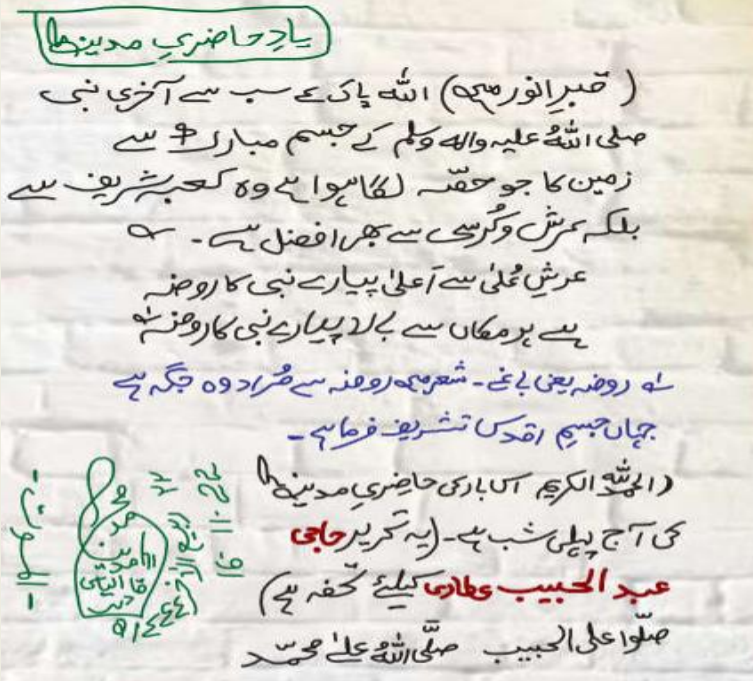 یادِ حاضریِ مدینہ
(قبرِ انور میں) اللہ پاک کے سب سے آخری نبی
صلی اللہُ علیہ واٰلہٖ وسلم کے جسم مبارک سے
زمین کا جو حصّہ لگا ہوا ہے وہ کعبہ شریف سے
بلکہ عرش و کُرسی سے بھی افضل ہے۔
عرشِ عُلیٰ سے اَعلیٰ پیارے نبی کا روضہ
ہے ہر مکاں سے بالا پیارے نبی کا روضہ
روضہ یعنی باغ۔ شعر میں روضہ سے مُراد وہ جگہ ہے
جہاں جسمِ اقدس تشریف فرما ہے۔
(الحمدُ للہِ الکریم اس بار کی حاضریِ مدینہ
کی آج پہلی شب ہے۔ (یہ تحریر حاجی
عبد الحبیب عطاری کیلئے تحفہ ہے)
صلّوا علی الحبیب صلَّی اللہُ علیٰ محمّد
محمد الیاس قادری
ربیع الآخر ١٤٤٤ھ